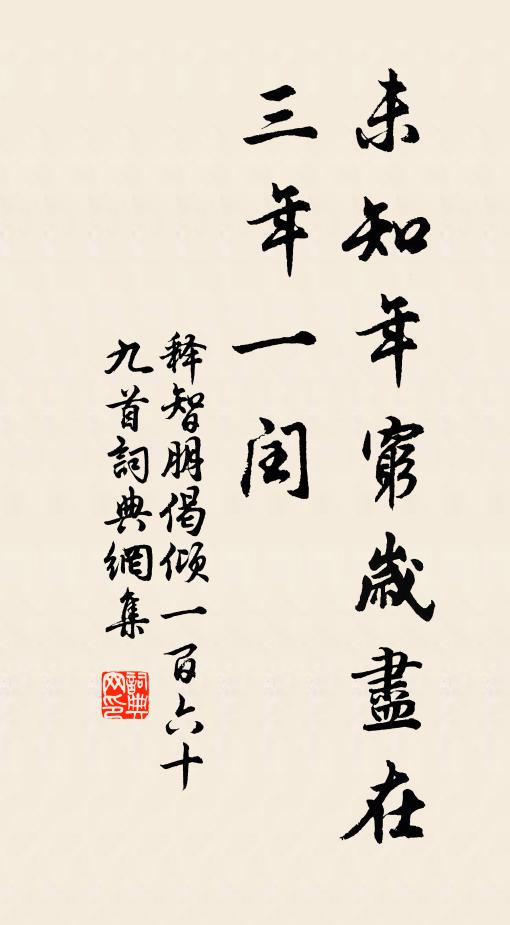 未知年窮歲盡在
三年一闰
释智朋偈倾一百六十
九首詞典網集
詞典
网印